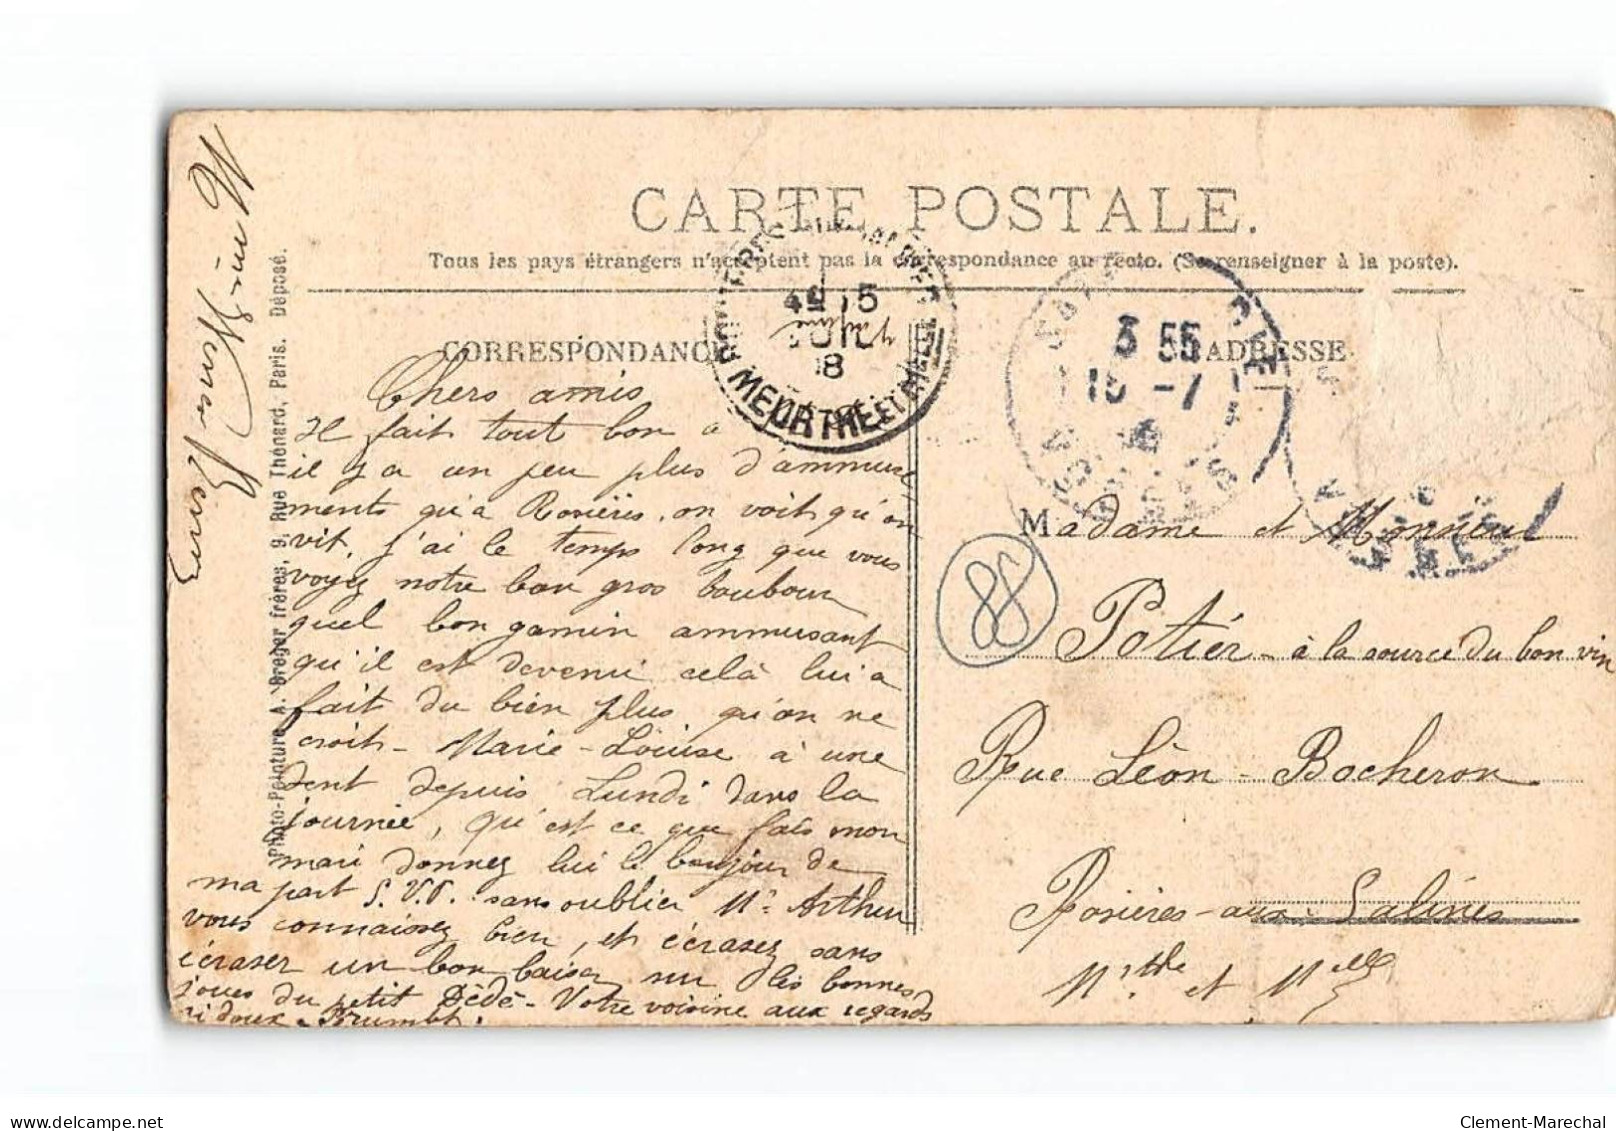 CARTE POSTALE.
Tous les pays étrangers n'acceptent pas la correspondance au recto. (Se renseigner à la poste).
CORRESPONDANCE
ADRESSE
Chers amis
Il fait tout bon a
il y a un peu plus d'ammuse
ments qu'a Rosières, on voit qu'on
vit, j'ai le temps long que vous
voyez notre bon gros
quel bon gamin ammusant
qu'il est devenu celà lui a
fait du bien plus qu'on ne
croit - Marie-Louise à une
dent depuis Lundi dans la
journée, Qu'est ce que fais mon
mari donnez lui le bonjour de
ma part S.V.P. sans oublier Mr Arthur
vous connaissez bien, et écrasez sans
écraser un bon baiser su les bonnes
joues du petit Dédé - Votre voisine aux regards
si doux
Madame et Monsieur
Potier - à la source du bon vin
Rue Léon - Bocheron
Rosières-aux-Salines
Mrthe et Melle
88
3 55
15 -7
4E 15
JUIL
8
MEURTHE ET M
Photo-Peinture A. Breger frères, 9, Rue Thénard, Paris. Déposé.
Clement-Marechal